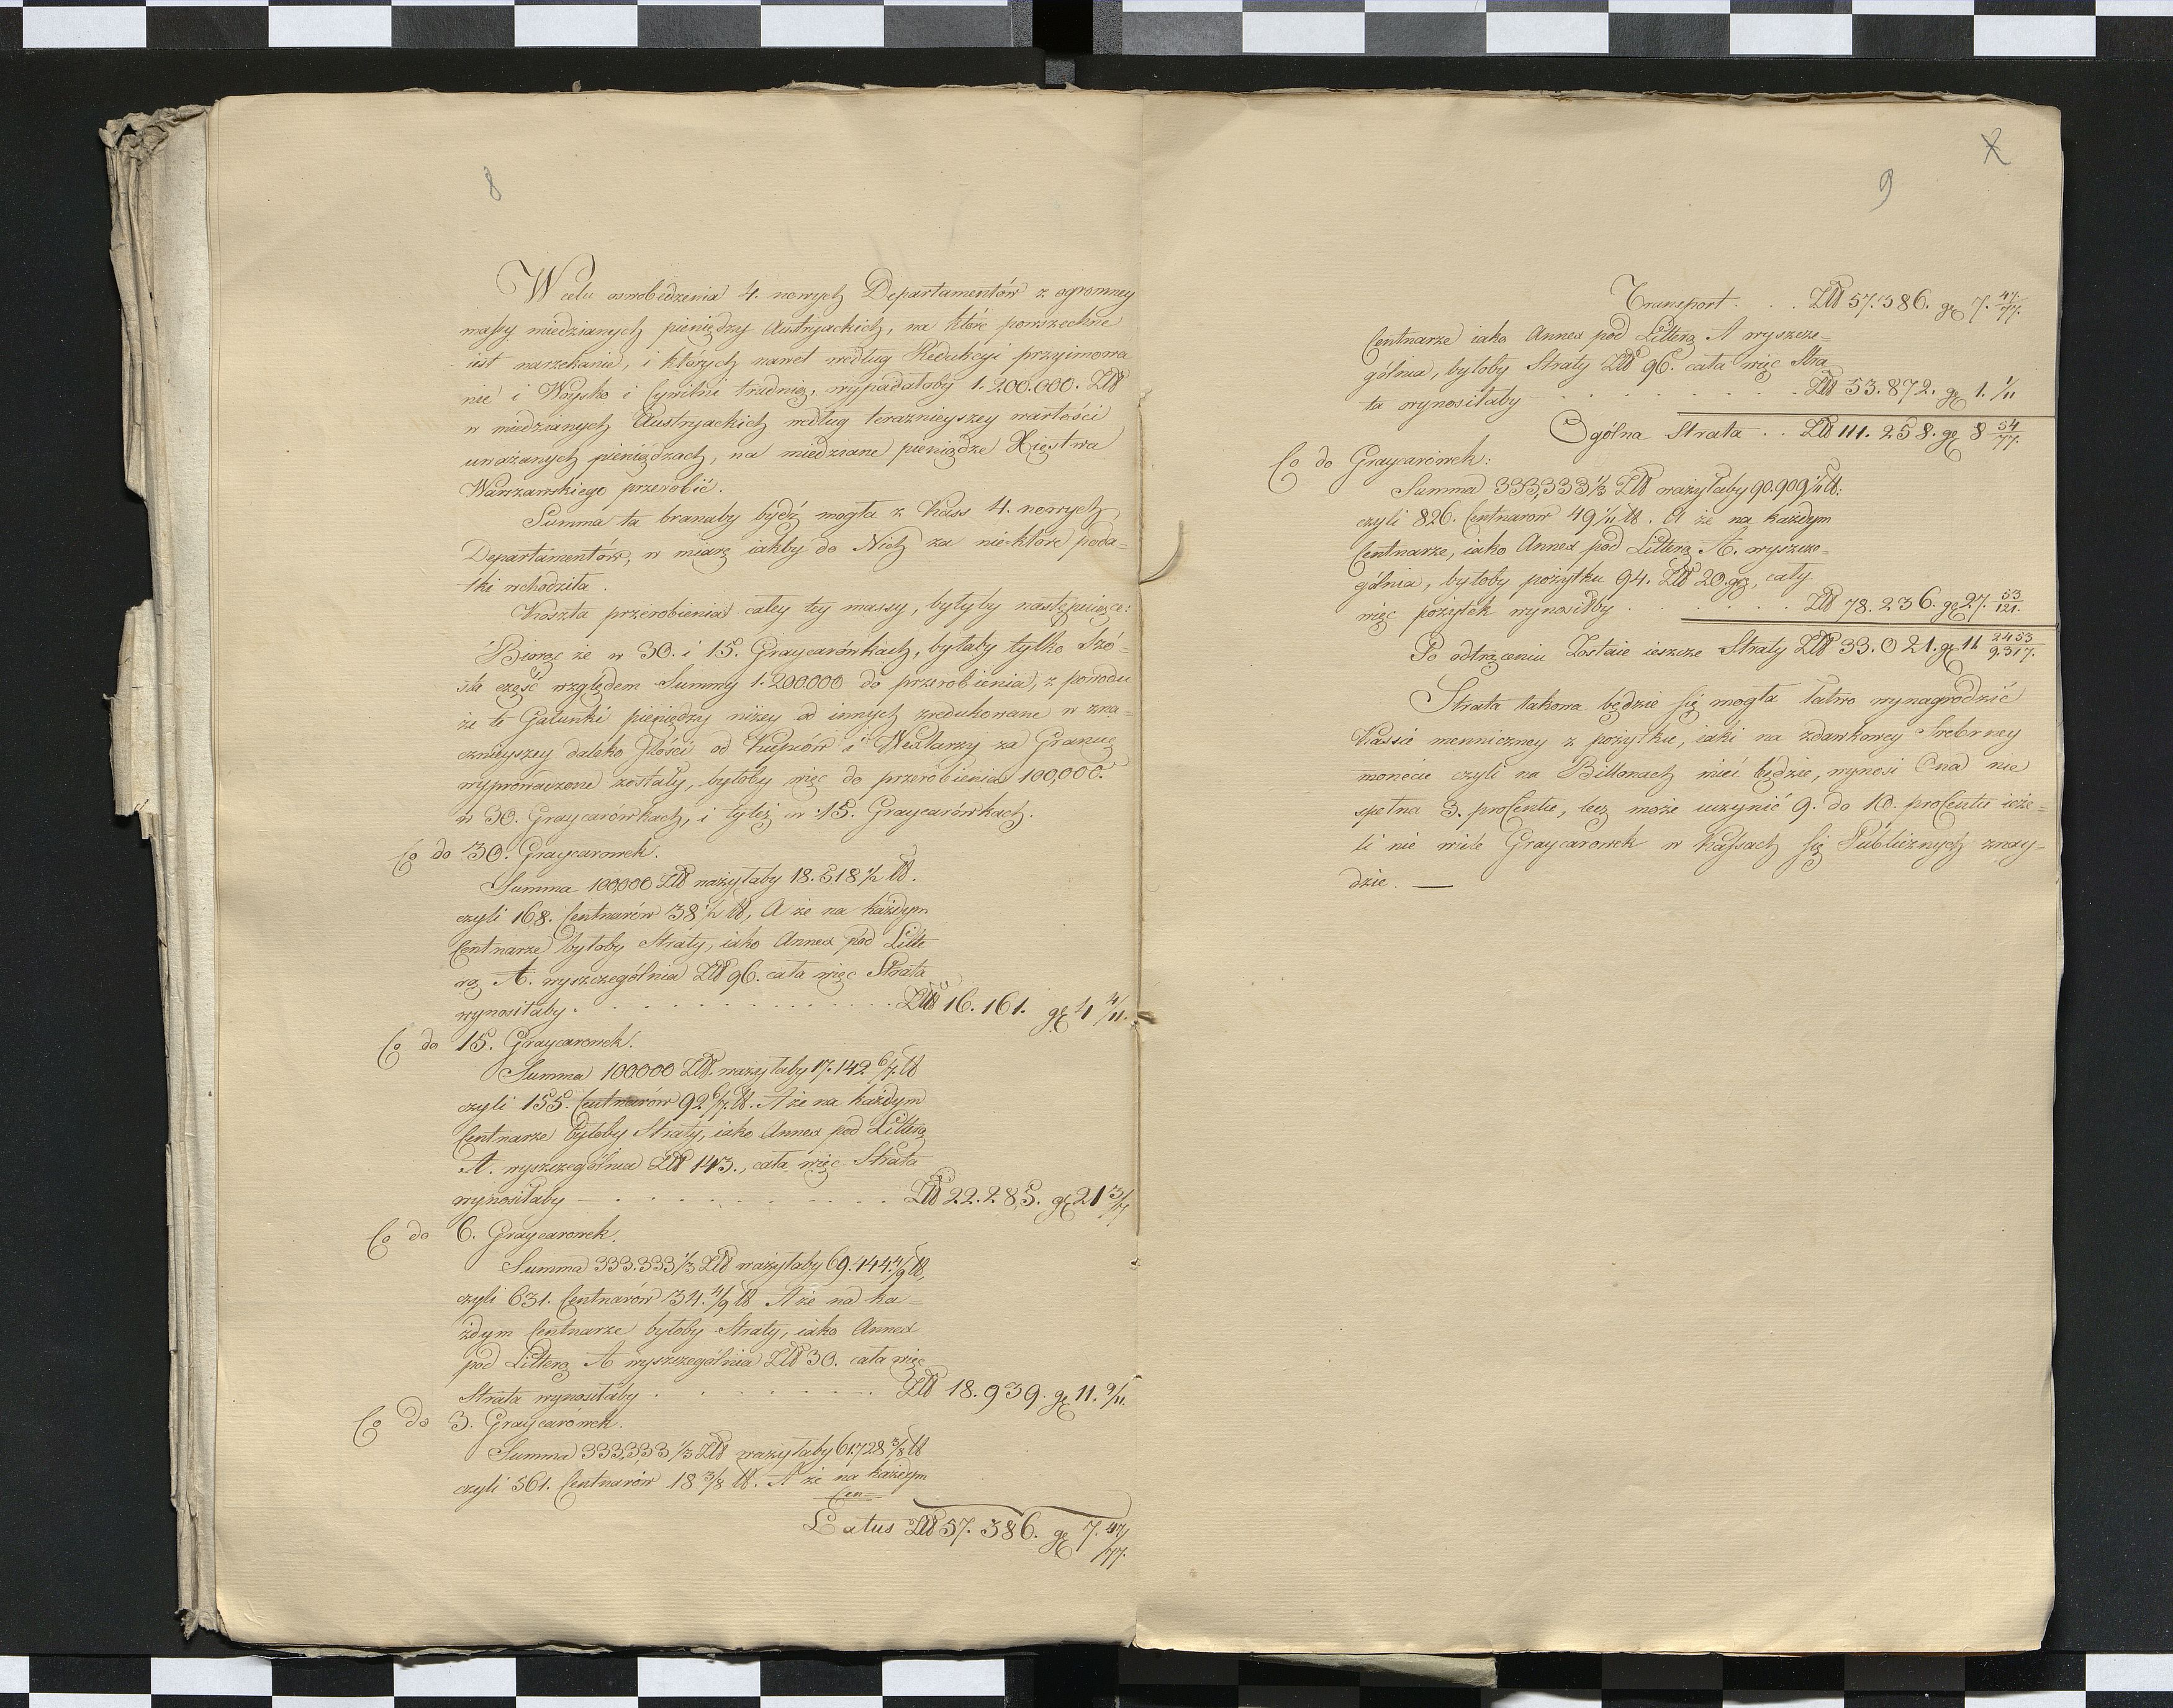 8
W celu oswobodzenia 4. nowych Departamentów z ogromney
massy miedzianych pieniędzy Austryackich, na które powszechne
iest narzekanie, i których nawet według Redukcyi przyimowa
nie i Woysko i Cywilni trudnią, wypadałoby 1.200.000. Złt
w miedzianych Austryackich według teraznieyszey wartości
uważanych pieniądzach, na miedziane pieniądze Xięstwa
Warszawskiego przerobić.
Summa ta branaby bydź mogła z Kass 4. nowych
Departamentów, w miarę iakby do Nich za nie-które poda=
tki wchodziła.
Koszta przerobienia całey tey massy, byłyby następuiące:
Biorąc że w 30. i 15. Graycarówkach, byłaby tylko Szó=
sta część względem Summy 1.200000 do przerobienia, z powodu
że te Gatunki pieniędzy niżey od innych zredukowane w zna=
cznieyszey daleko Ilości od Kupców i Wexlarzy za Granicę
wyprowadzone zostały, byłoby więc do przerobienia 100,000.
w 30. Graycarówkach, i tyleż w 15. Graycarówkach.
Co do 30. Graycarowek.
Summa 100,000 Złt ważyłaby 18.518 1/2 ℔.
czyli 168. Centnarów 38 1/2 ℔, A że na każdym
Centnarze byłoby Straty, iako Annex pod Litte
rą A. wyszczególnia Złt 96. cała więc Strata
wynosiłaby . . . . . . . . Złt 16.161. gr 4 4/11.
Co do 15. Graycarowek.
Summa 100000 Złt. ważyłaby 17.142 6/7. ℔
czyli 155. Centnarów 92 6/7. ℔. A że na każdym
Centnarze byłoby Straty, iako Annex pod Litterą
A. wyszczególnia Złt 143., cała więc Strata
wynosiłaby — . . . . . . . . Złt 22.285. gr 21 3/7
Co do 6. Graycarowek.
Summa 333.333 1/3 Złt ważyłaby 69.444. 4/9 ℔,
czyli 631. Centnarów 34. 4/9 ℔ A że na ka=
żdym Centnarze byłoby Straty, iako Annex
pod Litterą A wyszczególnia Złt 30. cała więc
Strata wynosiłaby . . . . . . Złt 18.939. gr 11. 9/11.
Co do 3. Graycarówek.
Summa 333,333 1/3 Złt ważyłaby 61728 3/8 ℔
czyli 561. Centnarów 18 3/8 ℔. A że na każdym
Cen=
Latus Złt 57.386. gr 7. 47/77.
9
Transport . . . Złt 57.386. gr 7. 47/77.
Centnarze iako Annex pod Litterą A wyszcze=
gólnia, byłoby Straty Złt 96. cała więc Stra
ta wynosiłaby . . . . . . . Złt 53.872. gr 1. 1/11
Ogólna Strata . . Złt 111.258. gr 8 54/77.
Co do Graycarówek:
Summa 333,333 1/3 Złt ważyłaby 90.909 1/11 ℔:
czyli 826. Centnarow 49 1/11 ℔. A że na każdym
Centnarze, iako Annex pod Litterą A. wyszcze=
gólnia, byłoby pożytku 94. Złt 20. gr, cały
więc pożytek wynosiłby . . . . . . . Złt 78.236. gr 27. 53/121.
Po odtrąceniu Zostaie ieszcze Straty Złt 33.021. gr. 11 2453/9317.
Strata takowa będzie się mogła łatwo wynagrodzić
Kassie menniczney z pożytku, iaki na zdawkowey Srebrney
monecie czyli na Billonach mieć będzie, wynosi Ona nie
spełna 3. proCentu, lecz może uczynić 9. do 10. proCentu ieże=
li nie wiele Graycarowek w Kassach się Publicznych znay=
dzie. —